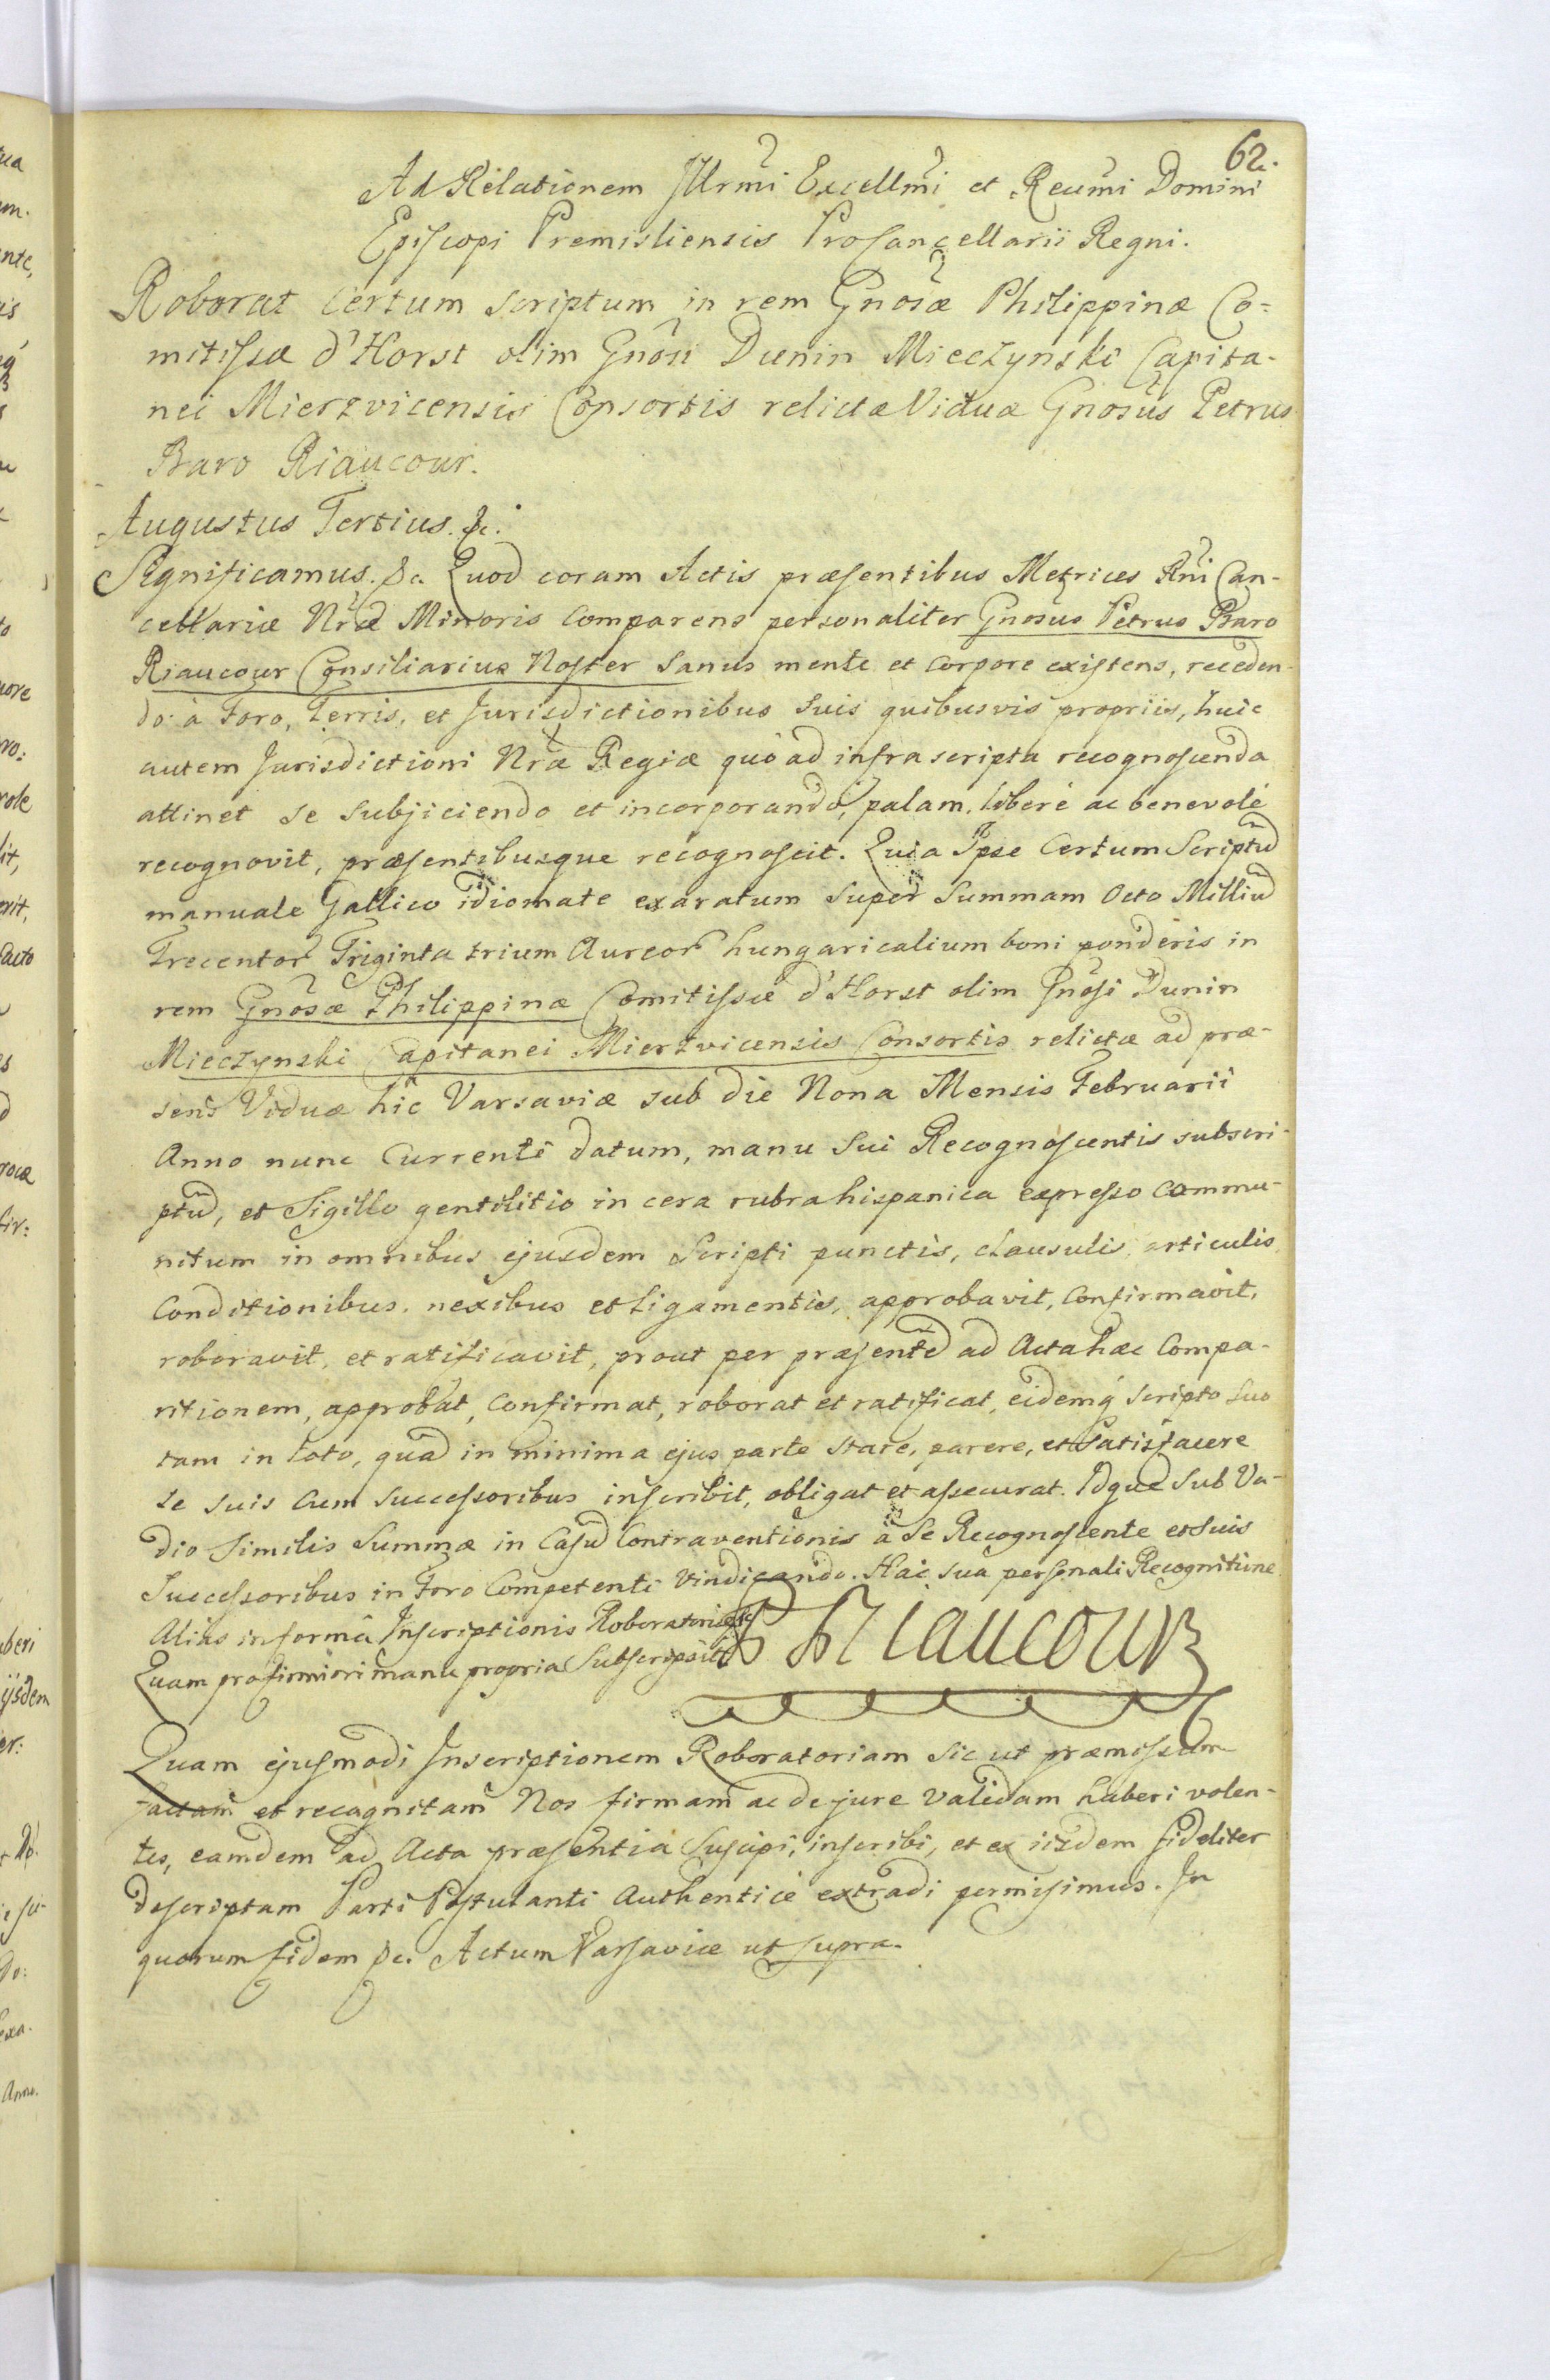 62.
Ad Relationem Illrmi Excellmi et Reumi Domini
Episcopi Premisliensis ProCancellarii Regni.
Roborat Certum Scriptum in rem Gnosæ Philippinæ Co=
mitissæ d'Horst olim Gnosi Dunin Mieczynski Capita-
nei Mierzvicensis Consortis relictæ Viduæ Gnosus Petrus
Baro Riaucour.
Augustus Tertius. &c.
Significamus. &c. Quod coram Actis præsentibus Metrices Rni Can-
cellariæ Nræ Minoris Comparens personaliter Gnosus Petrus Baro
Riaucour Consiliarius Noster Sanus mente et Corpore existens, receden-
do à Foro, Terris, et Jurisdictionibus Suis quibusvis propriis, huic
autem Jurisdictioni Nræ Regiæ quò ad infra scripta recognoscenda
attinet se Subjiciendo et incorporando, palam, liberè ac benevolè
recognovit, præsentibusque recognoscit. Quia Ipse Certum Scriptũ
manuale Gallico idiomate exaratum Super Summam Octo Milliũ
Trecentor Triginta trium Aureor hungaricalium boni ponderis in
rem Gnosæ Philippinæ Comitissæ d'Horst olim Gnosi Dunin
Mieczynski Capitanei Mierzvicensis Consortis relictæ ad præ-
sens Viduæ hic Varsaviæ sub die Nona Mensis Februarii
Anno nunc Currenti datum, manu Sui Recognoscentis subscri-
ptũ, et Sigillo gentilitio in cera rubra hispanica expresso Commu-
nitum in omnibus ejusdem Scripti punctis, clausulis, articulis,
Conditionibus, nexibus et Ligamentis, approbavit, Confirmavit,
roboravit, et ratificavit, prout per præsentẽ ad Acta hæc Compa-
ritionem, approbat, Confirmat, roborat et ratificat, eidemq́ Scripto Suo
tam in toto, quã in minima ejus parte Stare, parere, et Satisfacere
Se suis Cum Successoribus inscribit, obligat et assecurat. Idque Sub Va-
dio Similis Summæ in Casũ Contraventionis à Se Recognoscente et Suis
Successoribus in Foro Competenti Vindicando. Hac Suâ personali Recognitione
Aliàs in formâ Inscriptionis Roboratoriæ
Quam pro firmiori manu propria Subscripsit P. Riaucour
Quam ejusmodi Inscriptionem Roboratoriam Sic ut præmissum
factam et recognitam Nos firmam ac de jure Validam haberi volen-
tes, eamdem ad Acta præsentia Suscipi, inscribi, et ex iisdem fideliter
descriptam Parti Postulanti Authenticè extradi permisimus. In
quorum fidem &c. Actum Varsaviæ ut supra.